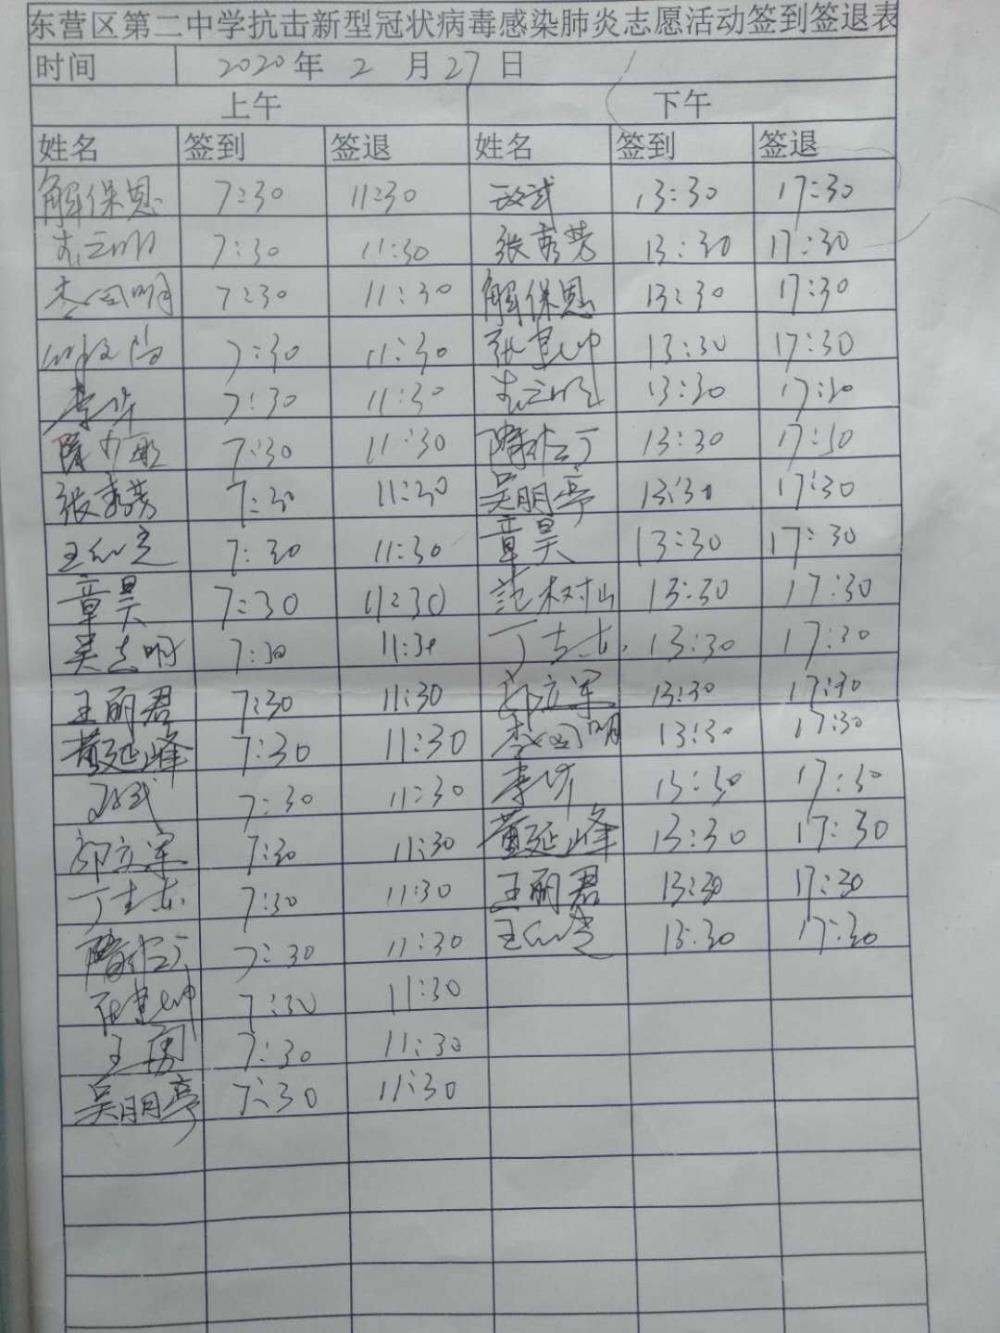 东营区第二中学抗击新型冠状病毒感染肺炎志愿活动签到签退表
时间 2020年 2 月 27 日
上午 下午
姓名 签到 签退 姓名 签到 签退
解保恩 7:30 11:30 13:30 17:30
7:30 11:30 张秀芳 13:30 17:30
李国明 7:30 11:30 解保恩 13:30 17:30
7:30 11:30 张建帅 13:30 17:30
7:30 11:30 13:30 17:30
7:30 11:30 13:30 17:30
张秀芳 7:30 11:30 吴朋亭 13:30 17:30
7:30 11:30 章昊 13:30 17:30
章昊 7:30 11:30 范树山 13:30 17:30
吴志明 7:30 11:30 丁志东 13:30 17:30
王丽君 7:30 11:30 郭立军 13:30 17:30
黄延峰 7:30 11:30 李国明 13:30 17:30
7:30 11:30 13:30 17:30
郭立军 7:30 11:30 黄延峰 13:30 17:30
丁志东 7:30 11:30 王丽君 13:30 17:30
7:30 11:30 13:30 17:30
张建帅 7:30 11:30
王勇 7:30 11:30
吴朋亭 7:30 11:30